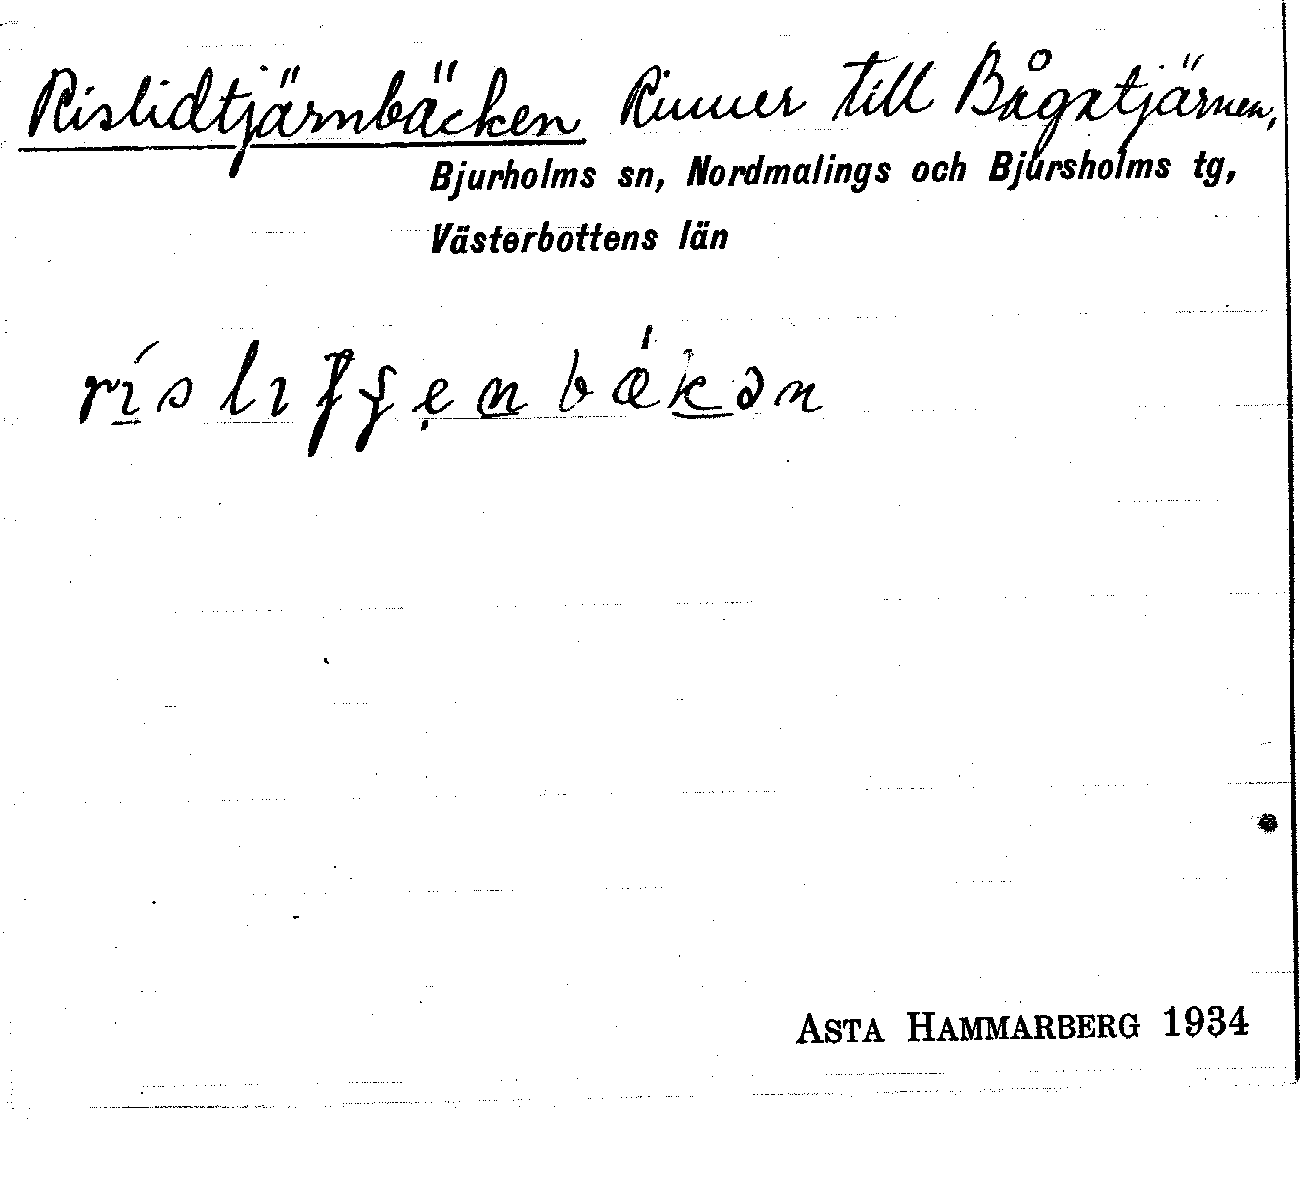 Rislidtjärnbäcken Rinner till Bågatjärnen,
Bjurholms sn, Nordmalings och Bjursholms tg,
Västerbottens län
ASTA HAMMARBERG 1934